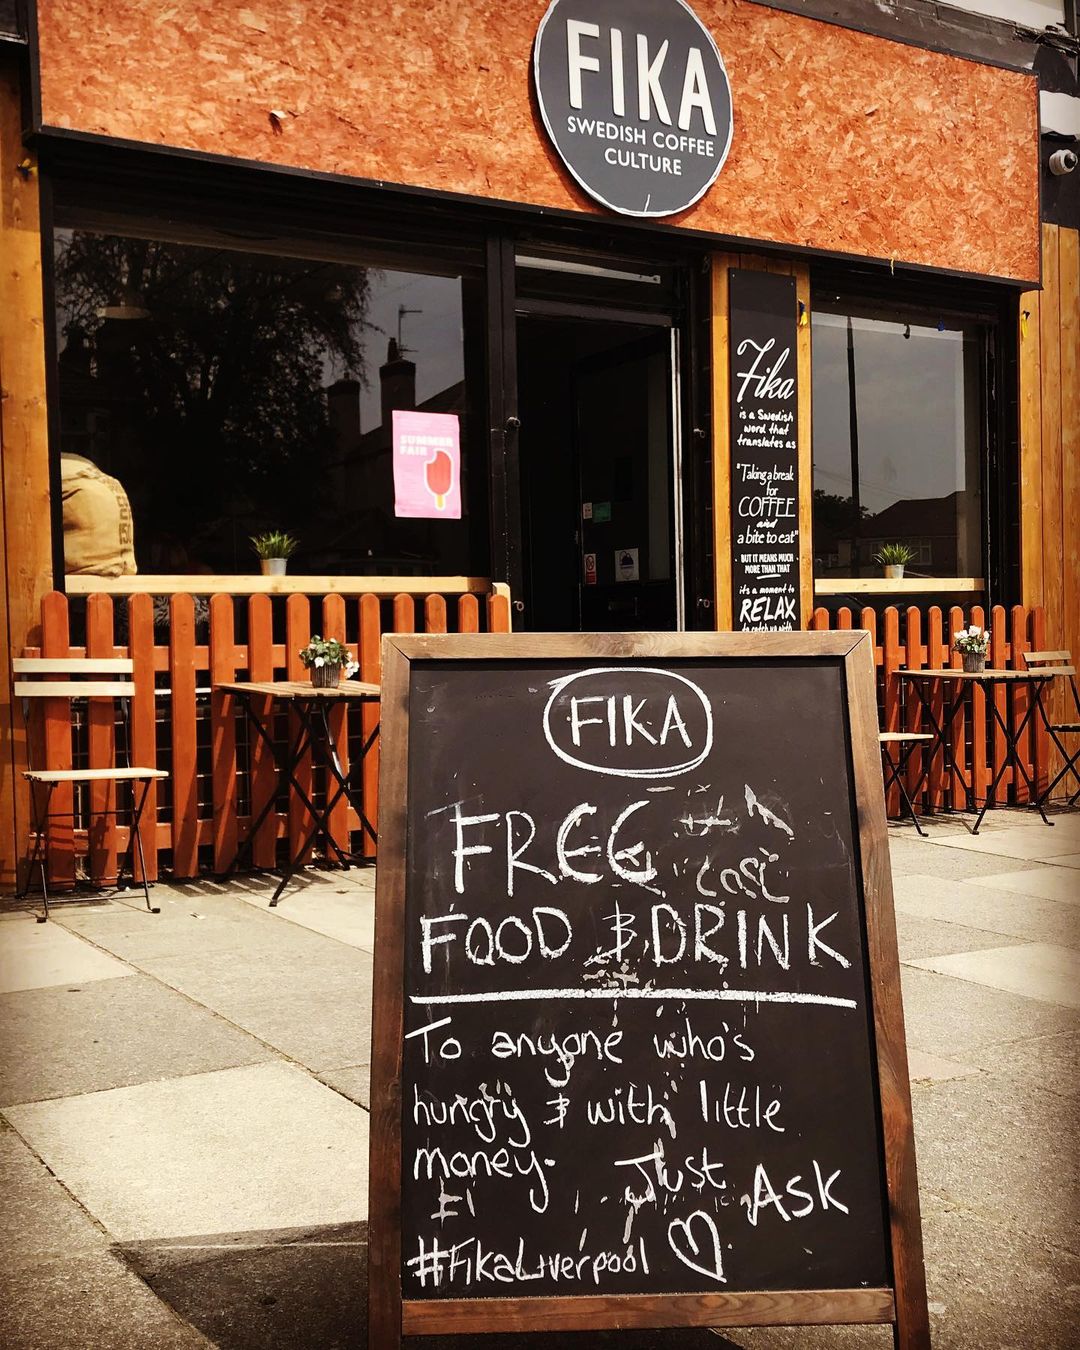 FIKA
SWEDISH COFFEE
CULTURE
SUMMER
FAIR
Fika
is a Swedish
word that
translates as
"Taking a break
for
COFFEE
and
a bite to eat"
BUT IT MEANS MUCH
MORE THAN THAT
it's a moment to
RELAX
to catch up with
FIKA
FREE
cost
FOOD & DRINK
To anyone who's
hungry & with little
money.
Just Ask
#FikaLiverpool